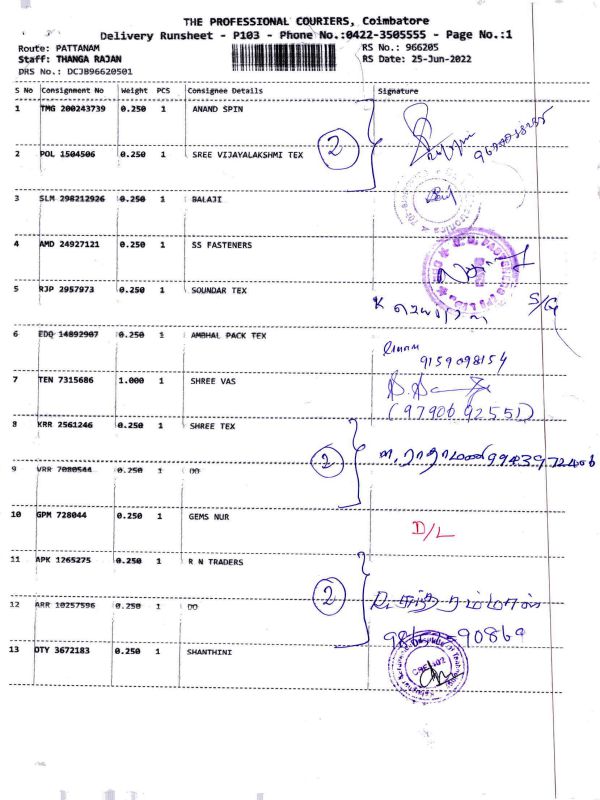 THE PROFESSIONAL COURIERS, Coimbatore
Delivery Runsheet - P103 - Phone No.:0422-3505555 - Page No.:1
Route: PATTANAM RS No.: 966205
Staff: THANGA RAJAN RS Date: 25-Jun-2022
DRS No.: DCJB96620501
S No Consignment No Weight PCS Consignee Details Signature
1 TMG 200243739 0.250 1 ANAND SPIN
2 POL 1504506 0.250 1 SREE VIJAYALAKSHMI TEX 2
3 SLM 298212926 0.250 1 BALAJI
4 AMD 24927121 0.250 1 SS FASTENERS
5 RJP 2957973 0.250 1 SOUNDAR TEX
6 EDQ 14892907 0.250 1 AMBHAL PACK TEX
9159098154
7 TEN 7315686 1.000 1 SHREE VAS
(9790692551)
8 KRR 2561246 0.250 1 SHREE TEX
9 VRR 7080544 0.250 1 DO 2
10 GPM 728044 0.250 1 GEMS NUR D/L
11 APK 1265275 0.250 1 R N TRADERS
12 ARR 10257596 0.250 1 DO 2
13 OTY 3672183 0.250 1 SHANTHINI